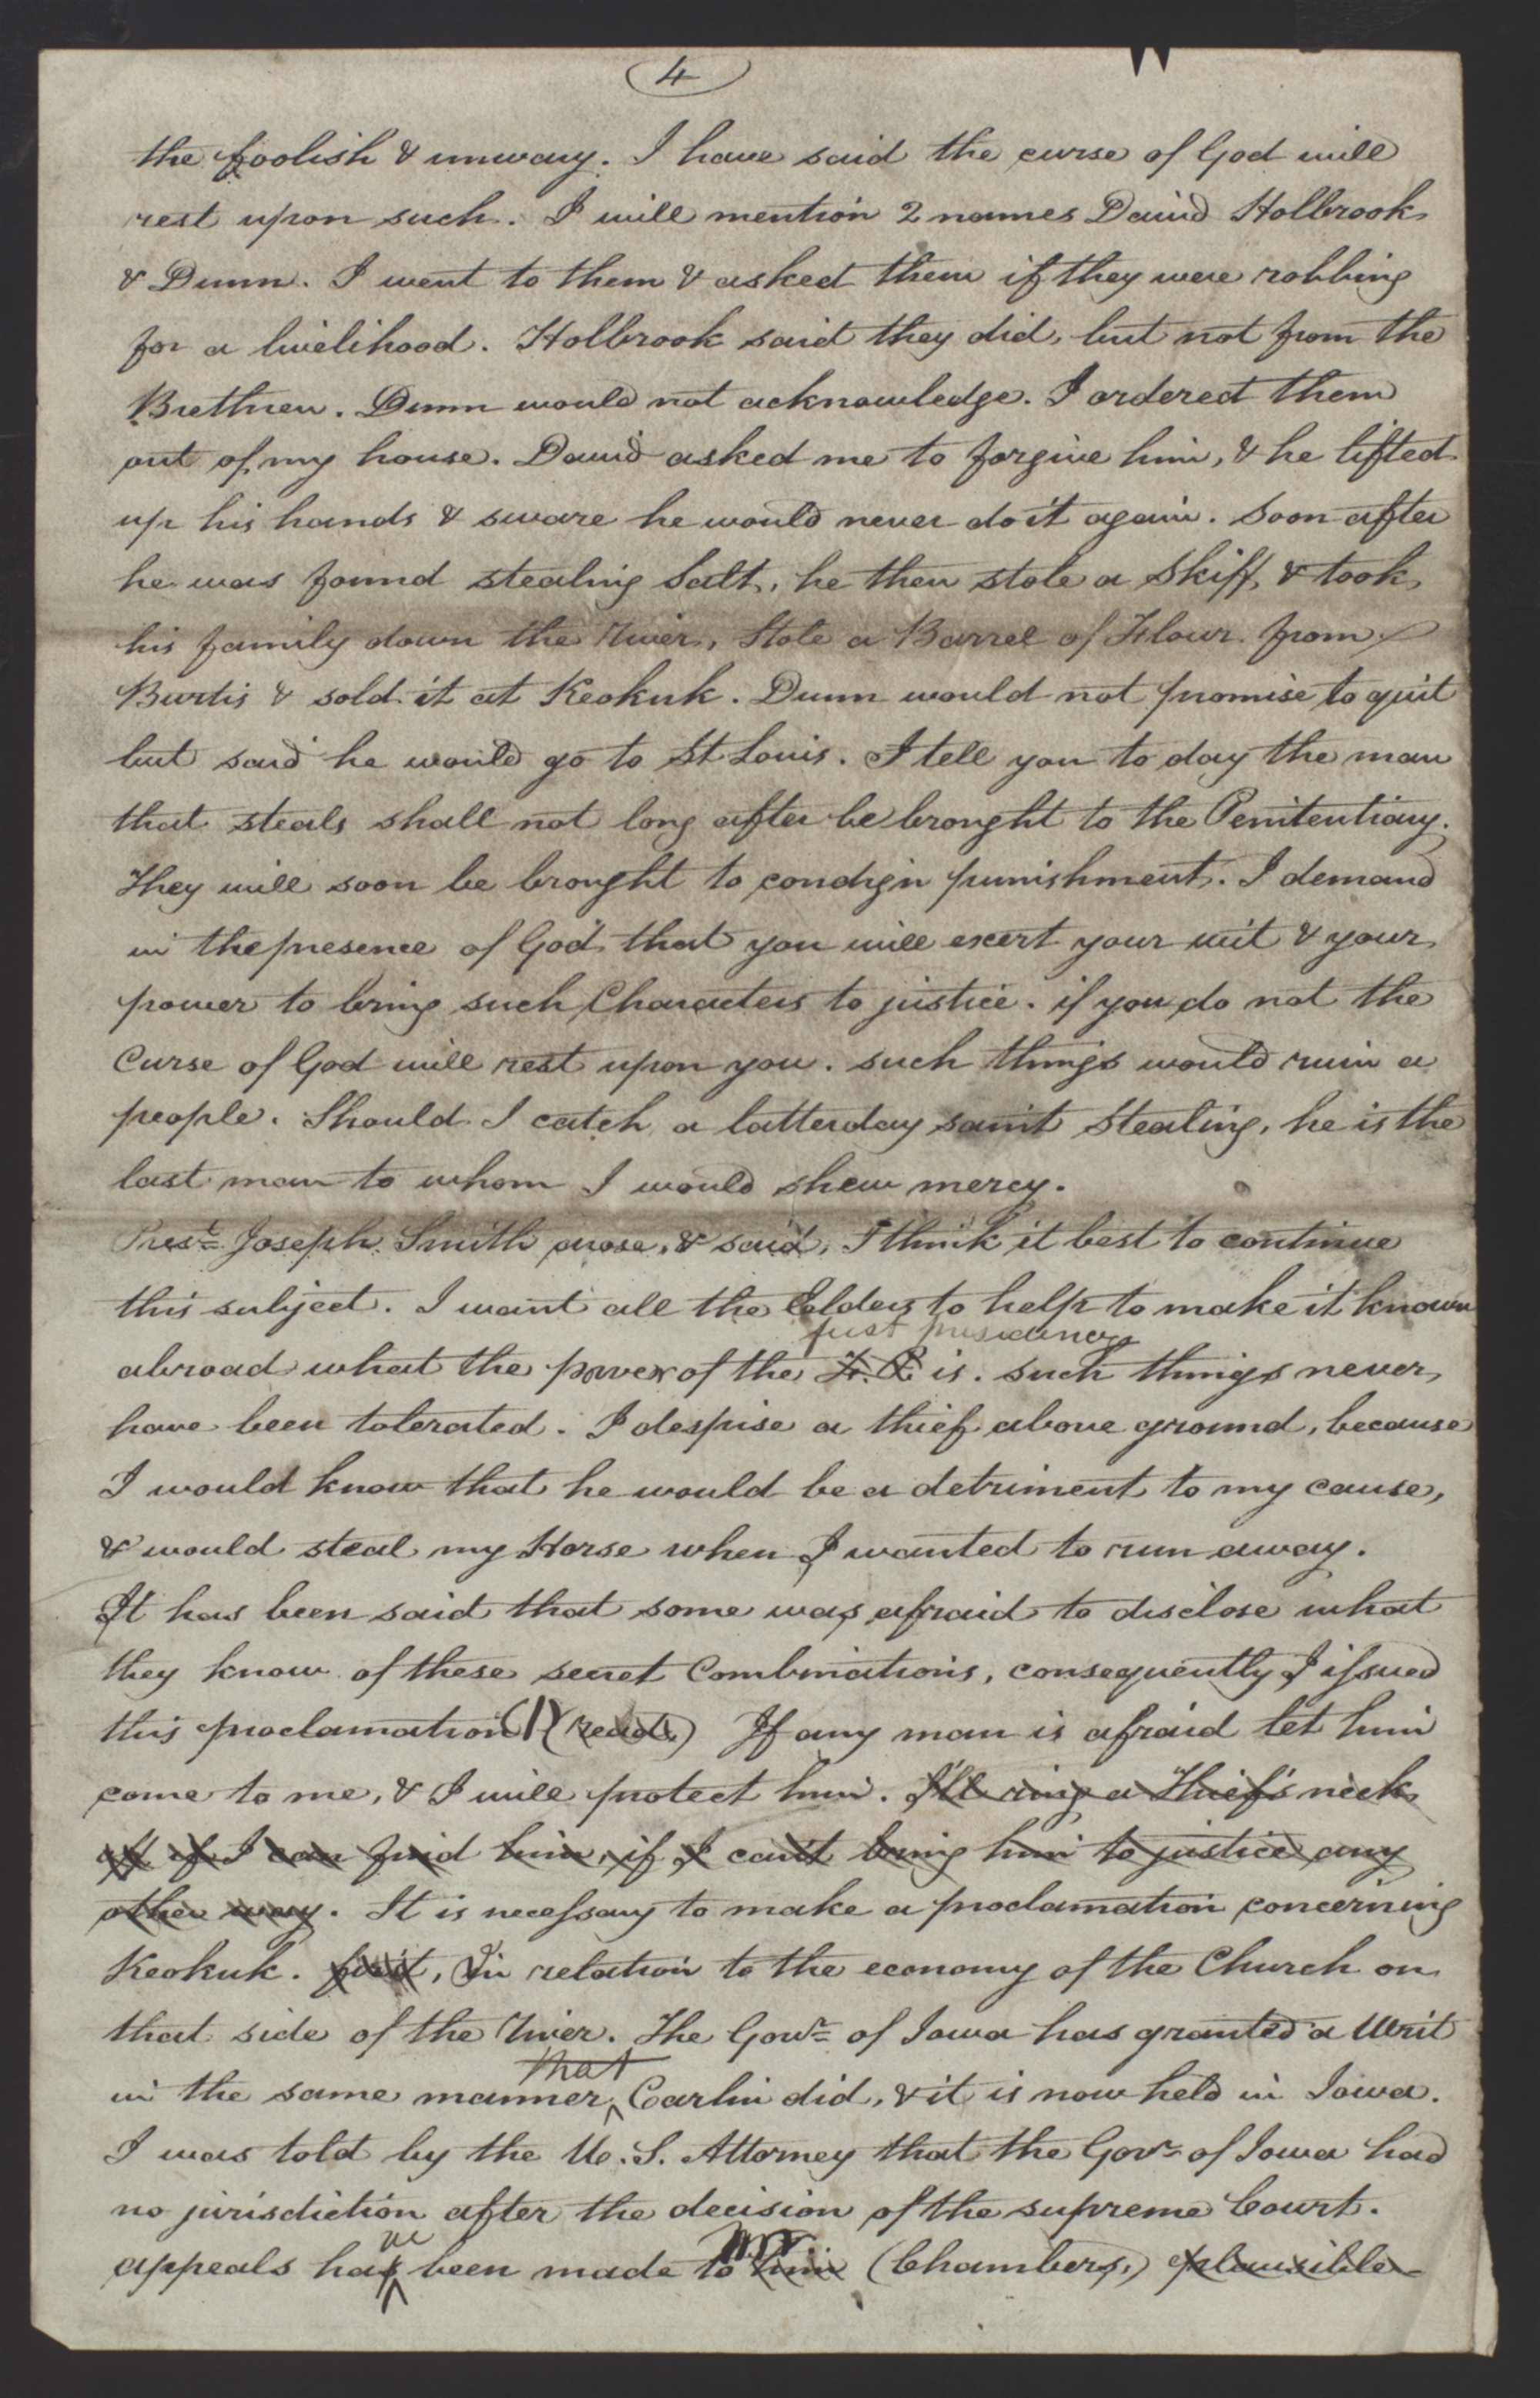 4
the foolish & unwary. I have said the curse of God will
rest upon such. I will mention 2 names David Holbrook
& Dunn. I went to them & asked them if they were robbing
for a livelihood. Holbrook said they did, but not from the
Brethren. Dunn would not acknowledge. I ordered them
out of my house. David asked me to forgive him, & he lifted
up his hands & sware he would never do it again. Soon after
he was found stealing Salt, he then stole a Skiff, & took
his family down the River, Stole a Barrel of Flour from
Burtis & sold it at Keokuk. Dunn would not promise to quit
but said he would go to St Louis. I tell you to day the man
that steals shall not long after be brought to the Penitentiary.
They will soon be brought to condign punishment. I demand
in the presence of God that you will exert your wit & your
power to bring such Characters to justice. if you do not the
Curse of God will rest upon you. such things would ruin a
people. Should I catch a latterday saint Stealing, he is the
last man to whom I would shew mercy.
Prest. Joseph Smith arose, & said, I think it best to continue
this subject. I want all the Eelders to help to make it known
first presidency
abroad what the power of the F. P. is. such things never
have been tolerated. I despise a thief above ground, because
I would know that he would be a detriment to my cause,
& would steal my Horse when I wanted to run away.
It has been said that some was afraid to disclose what
they know of these secret Combinations, consequently I issued
this proclamation (1) (read.) If any man is afraid let him
come to me, & I will protect him. I'll ring a Thief's neck
off if I can find him, if I can't bring him to justice any
other way. It is necessary to make a proclamation concerning
Keokuk. first, In relation to the economy of the Church on
that side of the River. The Govr. of Iowa has granted a Writ
that
in the same manner Carlin did, & it is now held in Iowa.
I was told by the U. S. Attorney that the Govr. of Iowa had
no jurisdiction after the decision of the supreme Court.
ve Mr.
appeals has been made to him (Chambers,) plausible